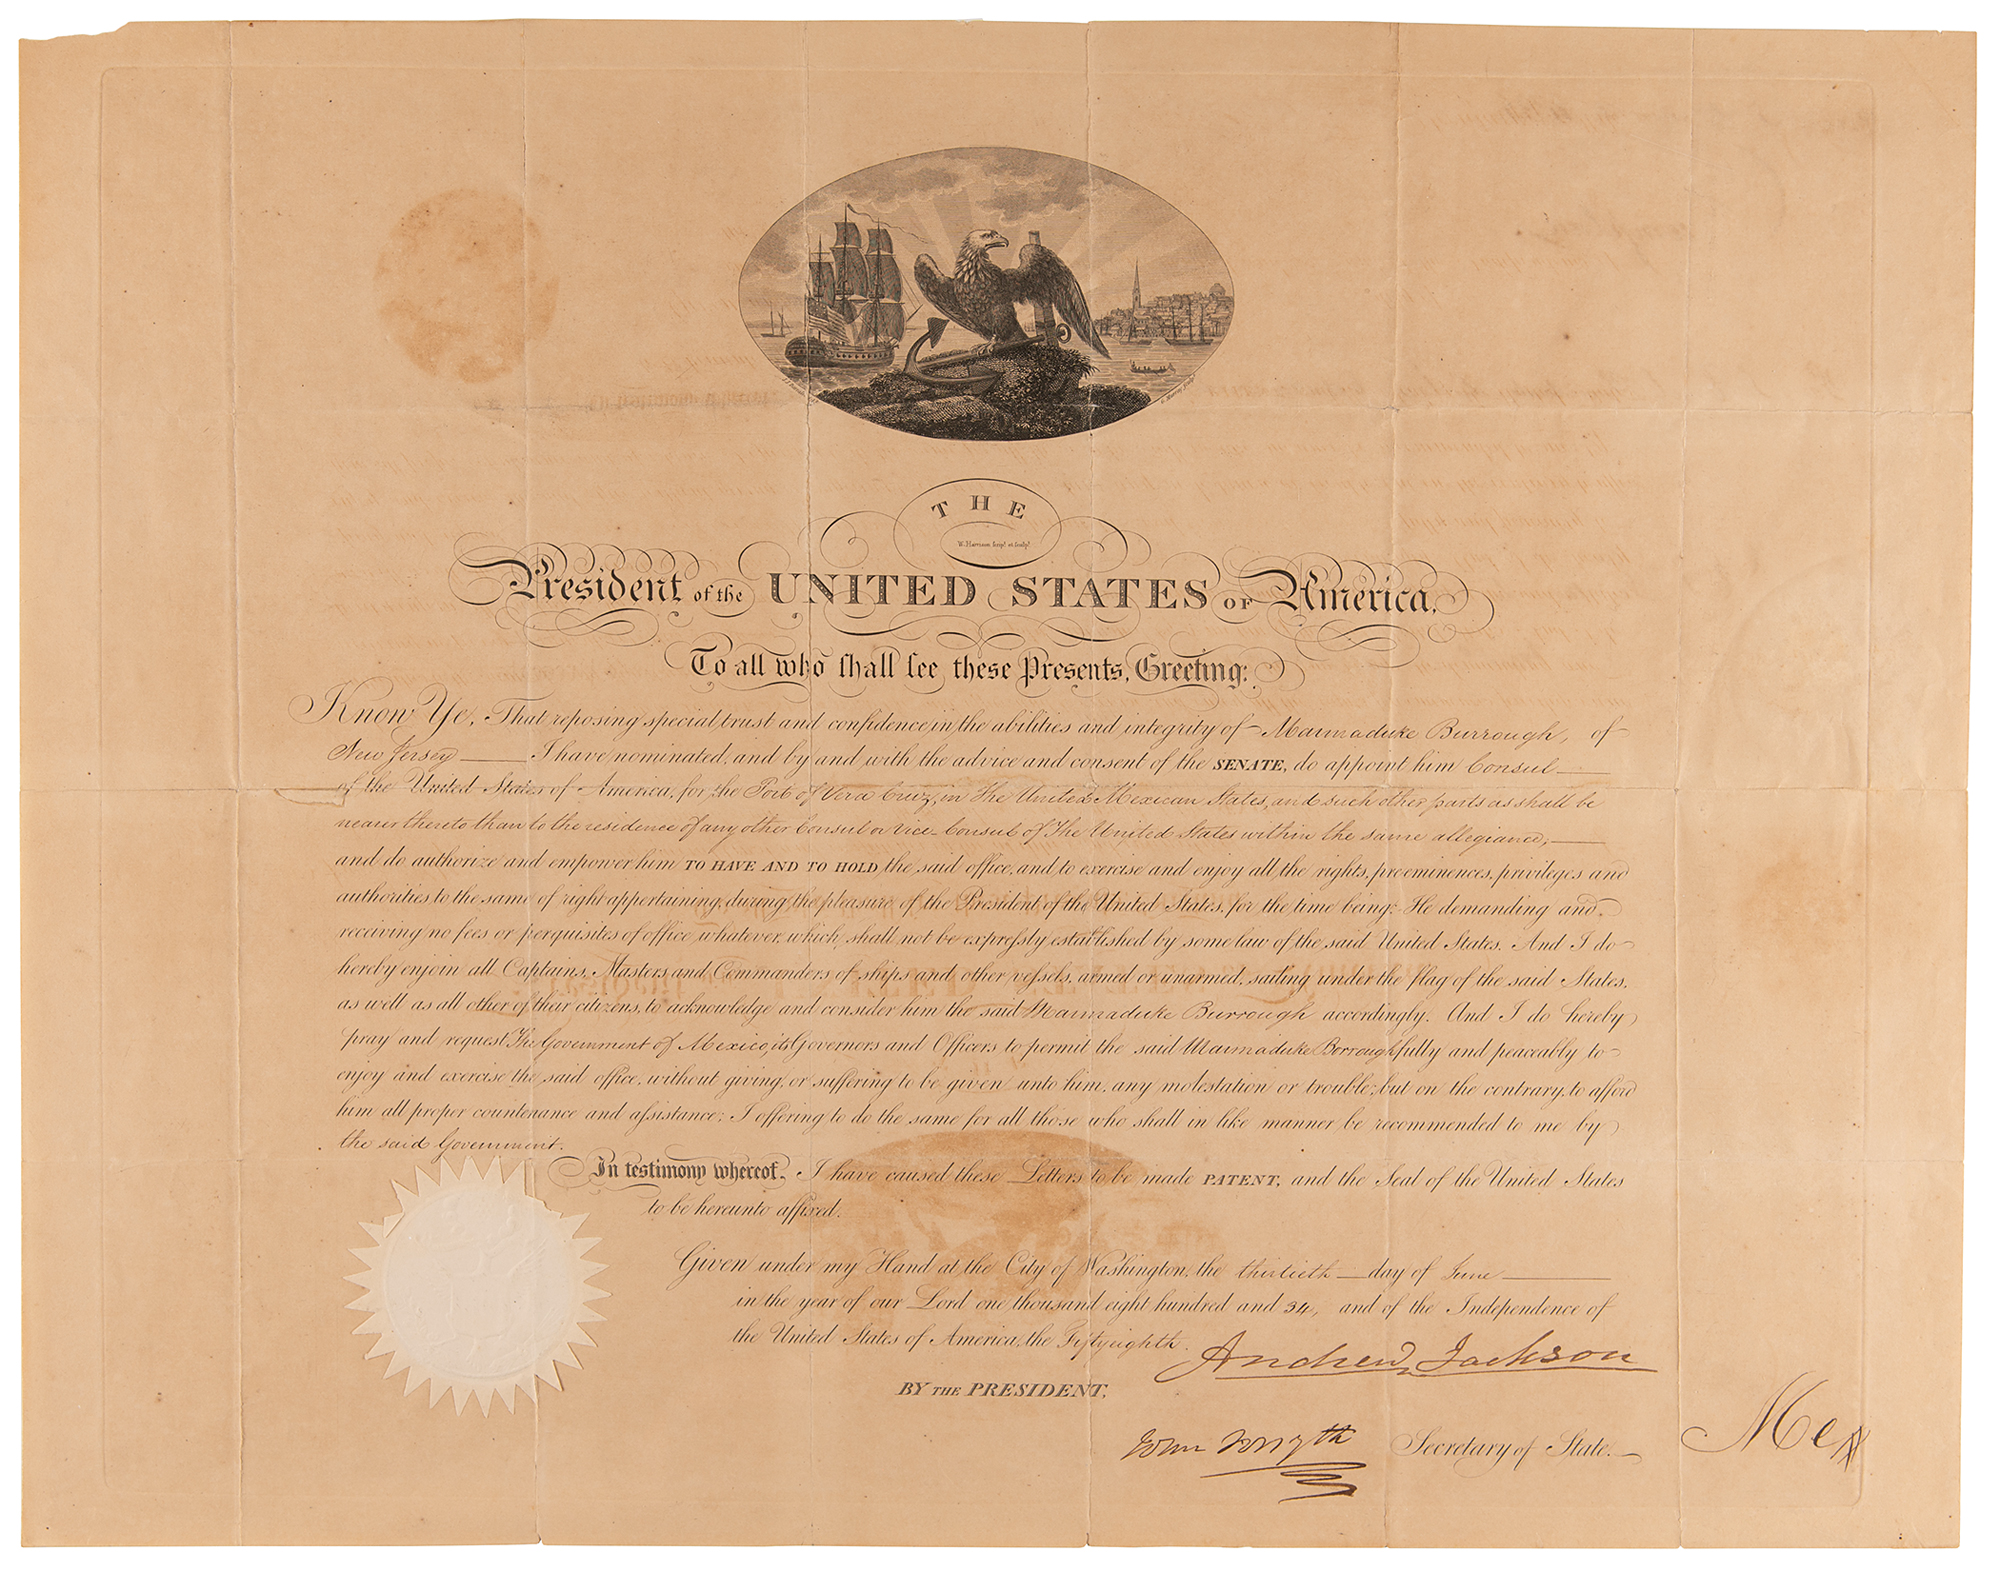 THE
W. Harrison Script et Sculpt
President of the UNITED STATES OF America,
To all who shall see these Presents, Greeting:
Know Ye, That reposing special trust and confidence in the abilities and integrity of Marmaduke Burrough, of
New Jersey I have nominated, and by and with the advice and consent of the SENATE, do appoint him Consul
of the United States of America, for the Port of Vera Cruz, in The United Mexican States, and such other parts as shall be
nearer thereto than to the residence of any other Consul or Vice-Consul of The United States within the same allegiance;
and do authorize and empower him TO HAVE AND TO HOLD the said office, and to exercise and enjoy all the rights, preeminences, privileges and
authorities to the same of right appertaining, during the pleasure of the President of the United States, for the time being: He demanding and
receiving no fees or perquisites of office whatever, which shall not be expressly established by some law of the said United States. And I do
hereby enjoin all Captains, Masters and Commanders of ships and other vessels, armed or unarmed, sailing under the flag of the said States,
as well as all other of their citizens, to acknowledge and consider him the said Marmaduke Burrough accordingly. And I do hereby
pray and request The Government of Mexico, its Governors and Officers to permit the said Marmaduke Borrough fully and peaceably to
enjoy and exercise the said office, without giving, or suffering to be given unto him, any molestation or trouble; but on the contrary, to afford
him all proper countenance and assistance; I offering to do the same for all those who shall in like manner be recommended to me by
the said Government.
In testimony whereof, I have caused these Letters to be made PATENT, and the Seal of the United States
to be hereunto affixed.
Given under my Hand at the City of Washington, the thirtieth day of June
in the year of our Lord one thousand eight hundred and 34, and of the Independence of
the United States of America, the Fifty eighth.
Andrew Jackson
BY THE PRESIDENT,
John Forsyth Secretary of State.
Mex